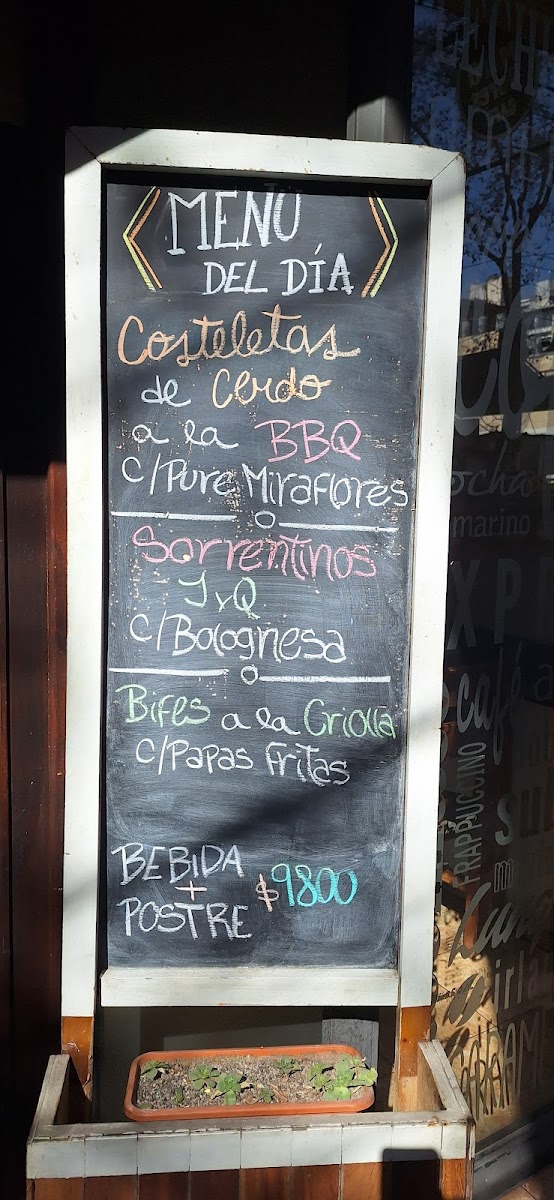 MENÚ
DEL DÍA
Costeletas
de Cerdo
a la BBQ
c/Pure Miraflores
Sorrentinos
JyQ
c/Bolognesa
Bifes a la Criolla
c/Papas Fritas
BEBIDA
+
POSTRE
$9800
LECHE
marino
café
FRAPPUCCINO